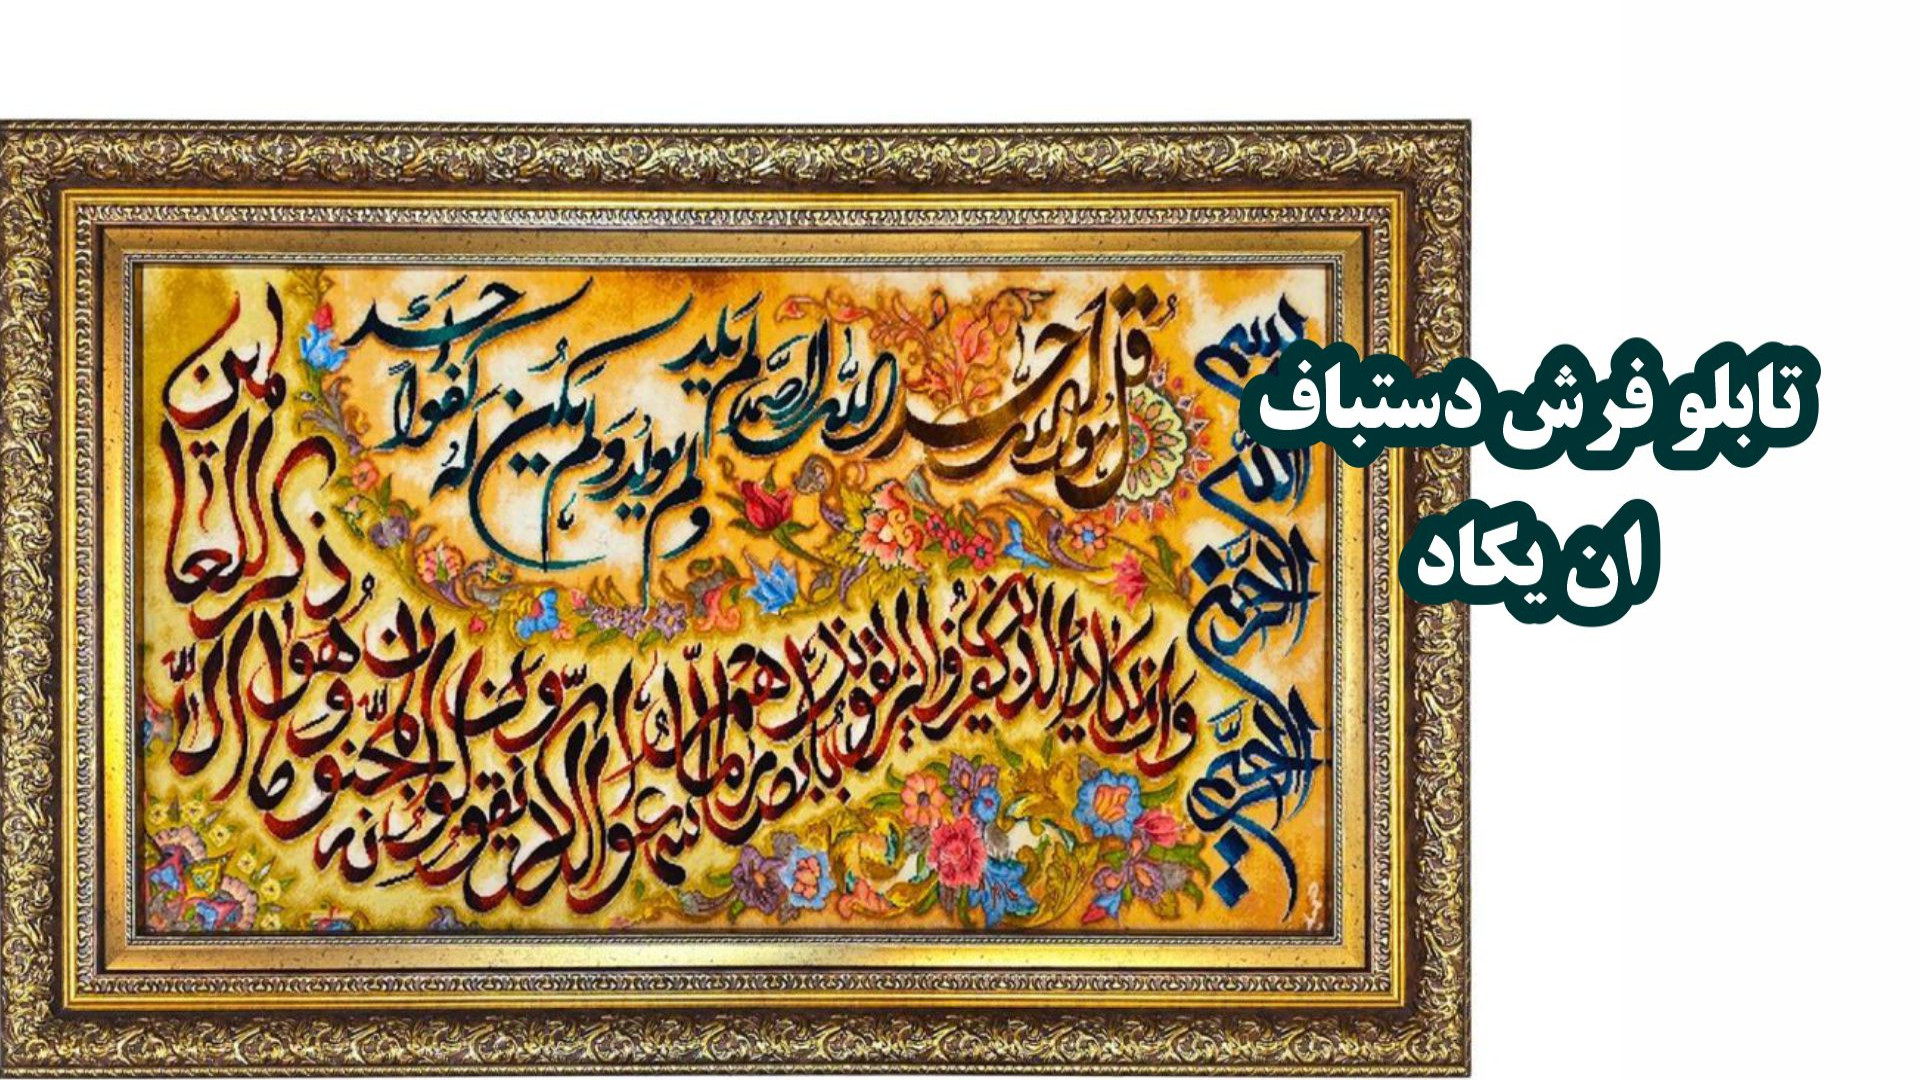 تابلو فرش دستباف
ان یکاد
بسم الله الرحمن الرحیم
قُل هو الله احد الله الصمد لم یلد
ولم یولد ولم یکُن لهُ کفواً احد
وَاِن یکاد الذین کفرو لیزلقونک
بابصرهم لما سمعوا الذکر و یقولون
انه لمجنون و ما هو الا ذکر
للعالمین